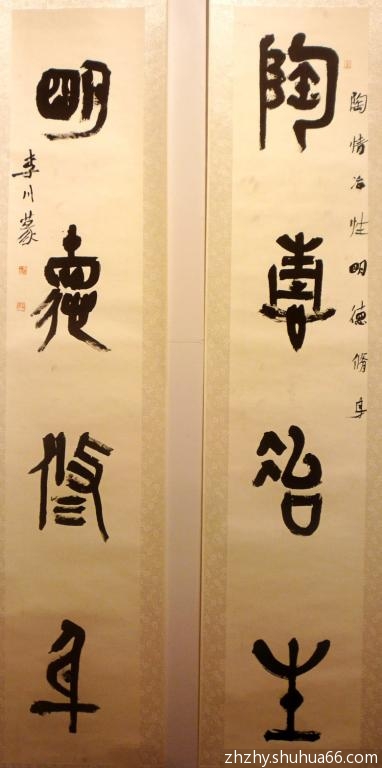 陶情冶性
陶情冶性明德脩身
明德修身
李川篆
zhzhy.shuhua66.com